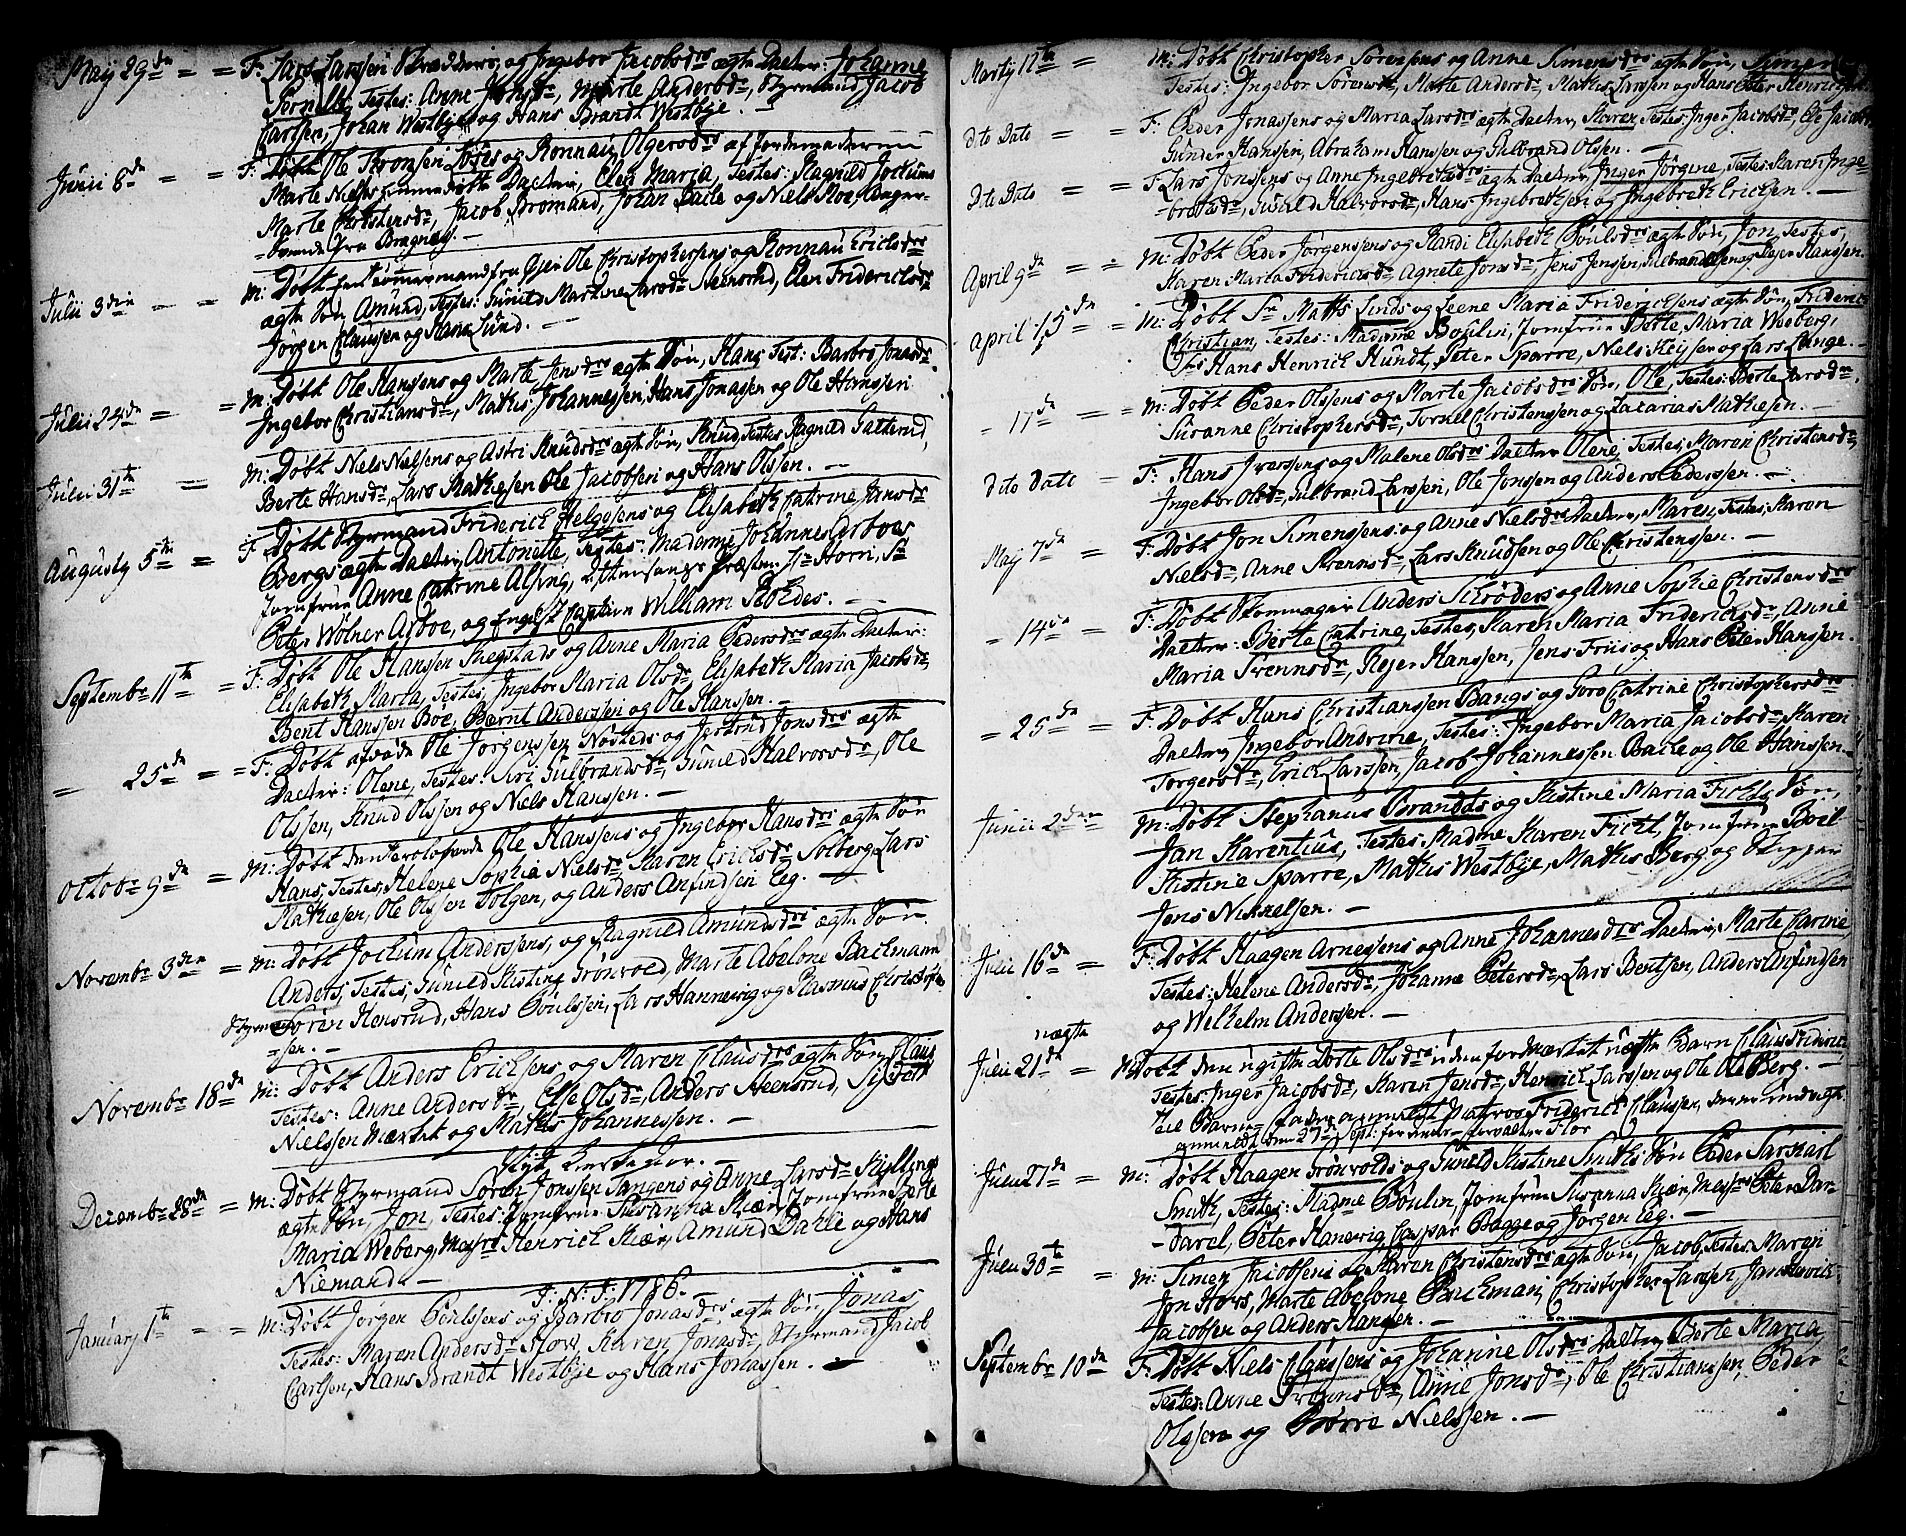 May 29de = = F: Lars Larssen og Ingebor Jacobsdrs ægte Datter: Johanne
Pernille, Testes: Anne Jonsdr, Marte Andersdr, Styrmand Jacob
Carlsen, Johan Westbye og Hans Brandt Westbye.
Junii 8de = = F: Døbt Ole Thronsen og Ronnau Olgersdrs af Jordemoderen
Marte Niels hiemmedøbt Datter, Elen Maria, Testes: Ragnild Jochums
Marte Christensdr, Jacob Bromand, Johan Baile og Niels Moe
fra Bragnæs. —
Julii 3die = = M: Døbt Tømmermand fra Gjer Ole Christophersens og Ronnau Erichsdrs
ægte Søn, Amund, Testes: Gunild Martine Larsdr Steensrud, Elen Friderichsdr,
Jørgen Claussen og Hans Lund. —
Julii 24de = = M: Døbt Ole Hanssens og Marte Jensdrs ægte Søn, Hans, Test: Barbro Jonasdr
Ingebor Christiansdr, Mathis Johannessen, Hans Jonasen og Ole Hanssen
Julii 31te = M: Døbt Niels Nielsens og Astri Knudsdrs ægte Søn, Knud, Testes, Ragnild Galterud,
Berte Hansdr, Lars Mathiesen Ole Jacobsen og Hans Olssen. —
Augusty 5te = F: Døbt Styrmand Friderich Helgesens og Elisabeth Catrine Jansdr
Bergs ægte Datter, Antonette, Testes: Madame Johannes Arboes
Jomfrue Anne Catrine Alsing, Præsten Hr Horn, Sr
Peter Wølner Arboe, og Engelsk Captein William Stokdes. —
Septembr 11te = F: Døbt Ole Hanssen Thegstads og Anne Maria Pedersdrs ægte Datter:
Elisabeth Marta, Testes, Ingebor Maria Olsdr, Elisabeth Maria Jacobsdr,
Bent Hanssen Boe, Bernt Anderssen og Ole Hanssen. —
= 25de = = F: Døbt Ole Jørgenssen Nøsteds og Jertrud Jonsdrs ægte
Datter: Olene, Testes: Siri Gulbrandsdr, Gunild Halvorsdr, Ole
Olssen, Knud Olssen og Niels Hanssen. —
Octobr 9de = M: Døbt Ole Hanssens og Ingebor Hansdrs ægte Søn
Hans, Testes, Helene Sophia Nielsdr, Karen Erichsdr Solberg, Lars
Mathiesen, Ole Olssen Tolgen, og Anders Anfindsen Eeg. —
Novembr 3die = M: Døbt Jochum Anderssens, og Ragnild Amundsdrs ægte Søn
Anders, Testes, Gunild Kistine Grønvold, Marte Abelone Bachmann
Styrmand Søren Hensrud, Hans Poulssen, Lars Hannevig og Rasmus Christophers
=sen. —
Novembr 18de M: Døbt Anders Erichsens og Maren Clausdrs ægte Søn, Claus
Testes: Anne Andersdr, Else Olsdr, Anders Steensrud, Sifvert
Nielssen og Mathis Johannessen. —
Nyt Kirke Aar. —
Decembr 28de = M: Døbt Styrmand Søren Jonssen Tangens og Anne Larsdr Kyllings
ægte Søn, Jon, Testes: Jomfrue Susanna Skiær, Jomfrue Berte
Maria Weberg, Henrich Skiær, Amund Dahle og Hans
Niemand. —
J: N: J: 1786.
January 1te = = M: Døbt Jørgen Poulssens og Barbro Jonasdrs, ægte Søn, Jonas,
Testes: Maren Andersdr, Karen Jonasdr, Styrmand Jacob
Carlsen, Hans Brandt Westbye og Hans Jonassen. —
Marty 12te = = M: Døbt Christopher Sørensens og Anne Simensdrs ægte Søn, Simen
Testes: Ingebor Sørensdr, Marte Andersdr, Mathis Larssen og Hans Peter
dito Dato = = F: Peder Jonassens og Maria Larsdrs ægte Datter, Maren, Testes: Inger Jacobsdr, Ole Jacobs
Gunder Hanssen, Abraham Hanssen og Gulbrand Olssen. —
Dito Dato = = F: Lars Jonssens og Anne Ingebretsdrs ægte Datter, Inger Jørgine, Testes: Karen Inge
=bretsdr, Gunild Halvorsdr, Hans Ingebrethsen og Ingebreth Erichsen. —
April 9de = = M: Døbt Peder Jørgenssens og Randi Elisabeth Poulsdrs ægte Søn, Jon, Testes,
Karen Maria Friderichsdr, Agnete Jonsdr, Jens Jenssen, Gulbrand Olssen og Rejer Hanssen.
April 15de = = M: Døbt Sr Mathis Linds og Leene Maria Friderichsens ægte Søn, Frideric
Christian, Testes: Madame Boulin, Jomfrue Berte Maria Weeberg,
Hans Henrich Hundt, Peter Sparre, Niels Keyser og Lars Lange. —
= 17de = = M: Døbt Peder Olssens og Marte Jacobsdrs Søn, Ole, Testes: Berte Larsdr,
Susanne Christophersdr, Tornel Christenssen og Zacarias Mathiesen. —
dito Dato = F: Hans Iverssens og Malene Olsdrs Datter Olene, Testes: Maren Christensdr,
Ingebor Olsdr, Gulbrand Larssen, Ole Jonssen og Anders Pederssen. —
May 7de = F: Døbt Jon Simenssens og Anne Nielsdrs Datter, Maren, Testes, Karen
Nielsdr, Anne Svennsdr, Lars Knudsen og Ole Christenssen. —
= 14de = F: Døbt Skomager Anders Schrøders og Anne Sophie Christensdrs
Datter: Berte Catrine, Testes, Karen Maria Friderichsdr, Anne
Maria Svennsdr, Rejer Hanssen, Jens Friis og Hans Peter Hanssen.
= 25de = F: Døbt Hans Christianssen Bangs og Goro Catrine Christophersdrs
Datter, Ingebor Andrine, Testes: Ingebor Maria Jacobsdr, Karen
Torgersdr, Erich Larssen, Jacob Johannessen Baile og Ole Hanssen —
Junii 2den M: Døbt Stephanus Brandts og Kistine Maria Ficht, Søn,
Jan Karentius, Testes: Madme Karen Ficht, Jomfrue
Kistine Sparre, Mathis Westbye, Mathis Berg og Skipper
Jens Nikkelsen. —
Julii 16de = F: Døbt Haagen Arnessens og Anne Johannesdrs Datter, Marte Carine
Testes: Helene Andersdr, Johanne Petersdr, Lars Bentsen, Anders Anfindsen
og Welhelm Anderssen. —
uægte
Julii 21de = M: Døbt den ugifte Dorte Olsdrs uægte Barn Claus Frideric,
Testes: Inger Jacobsdr, Karen Jensdr, Henrich Larssen og Ole Ole Berg. —
Til Barne-fader Matros Friderich Claussen,
anmeldt den 27de Sept:
Julii 27de = M: Døbt Haagen Grønvolds og Gunild Kistine Smiths Søn Peder
Smith, Testes: Madme Boulin, Jomfrue Susanna Skiær, Peter Dar-
-darel, Peter Hanevig, Caspar Bagge og Jørgen Eeg. —
Julii 30te = M: Simen Jacobsens og Karen Christensdrs ægte Søn, Jacob, Testes: Maren
Jon Hovs, Marte Abelone Bachman, Christopher Larssen,
Jacobsen og Anders Hanssen. —
Septembr 10de F: Døbt Niels Claussens og Johanne Olsdrs Datter, Berte Maria,
Testes: Anne Svennsdr, Anne Jonsdr, Ole Christianssen, Peder
Olssen og Børre Nielssen. —